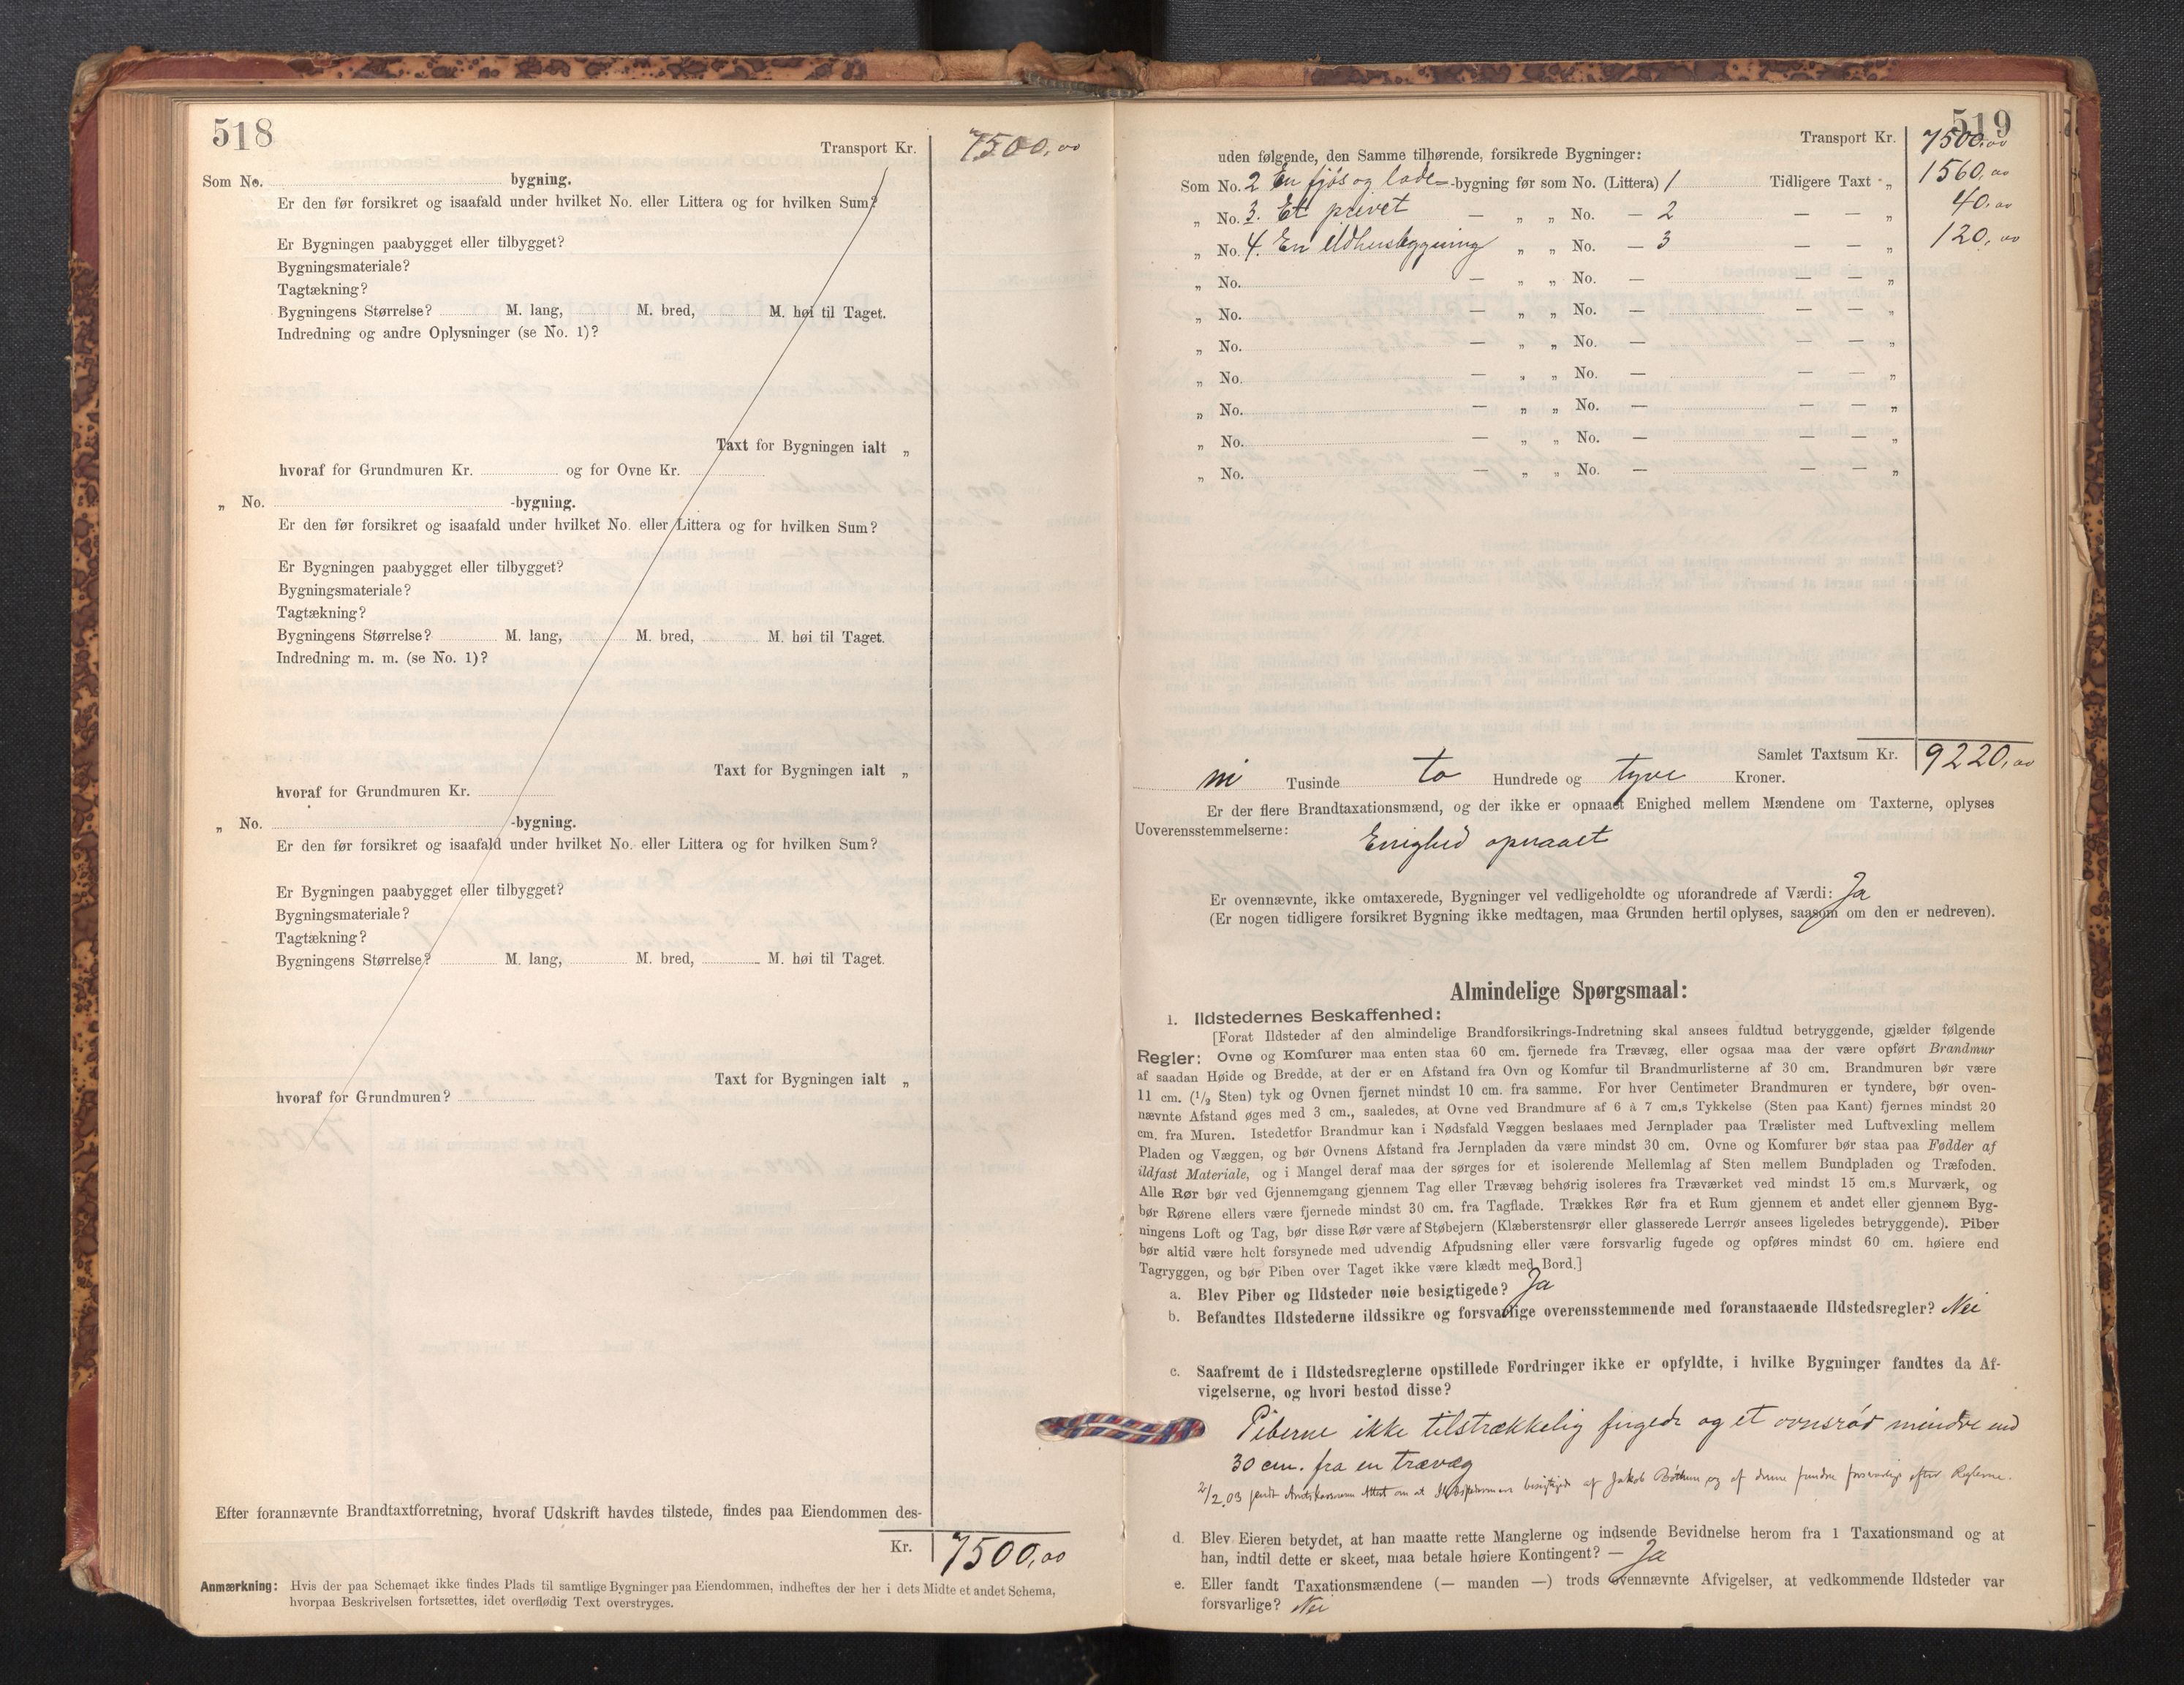 518
Transport Kr. 7500,00
Som No. bygning.
Er den før forsikret og isaafald under hvilket No. eller Littera og for hvilken Sum?
Er Bygningen paabygget eller tilbygget?
Bygningsmateriale?
Tagtækning?
Bygningens Størrelse? M. lang, M. bred, M. høi til Taget.
Indredning og andre Oplysninger (se No. 1)?
Taxt for Bygningen ialt „
hvoraf for Grundmuren Kr. og for Ovne Kr.
„ No. -bygning.
Er den før forsikret og isaafald under hvilket No. eller Littera og for hvilken Sum?
Er Bygningen paabygget eller tilbygget?
Bygningsmateriale?
Tagtækning?
Bygningens Størrelse? M. lang, M. bred, M. høi til Taget.
Indredning m. m. (se No. 1)?
Taxt for Bygningen ialt „
hvoraf for Grundmuren Kr.
„ No. -bygning.
Er den før forsikret og isaafald under hvilket No. eller Littera og for hvilken Sum?
Er Bygningen paabygget eller tilbygget?
Bygningsmateriale?
Tagtækning?
Bygningens Størrelse? M. lang, M. bred, M. høi til Taget.
Taxt for Bygningen ialt „
hvoraf for Grundmuren?
Efter forannævnte Brandtaxtforretning, hvoraf Udskrift havdes tilstede, findes paa Eiendommen des-
Kr. 7500,00
Anmærkning: Hvis der paa Schemaet ikke findes Plads til samtlige Bygninger paa Eiendommen, indheftes der her i dets Midte et andet Schema,
hvorpaa Beskrivelsen fortsættes, idet overflødig Text overstryges.
519
Transport Kr. 7500,00
uden følgende, den Samme tilhørende, forsikrede Bygninger:
Som No. 2 En fjøs og lade- -bygning før som No. (Littera) 1 Tidligere Taxt - „ 1560,00
„ No. 3. Et privet — „ „ No. — 2 — — „ 40,00
„ No. 4. En ildhusbygning „ „ No. — 3 — — „ 120,00
„ No. — „ „ No. — — — „
„ No. — „ „ No. — — — „
„ No. — „ „ No. — — — „
„ No. — „ „ No. — — — „
„ No. — „ „ No. — — — „
„ No. — „ „ No. — — — „
„ No. — „ „ No. — — — „
Samlet Taxtsum Kr. 9220,00
ni Tusinde to Hundrede og tyve Kroner.
Er der flere Brandtaxationsmænd, og der ikke er opnaaet Enighed mellem Mændene om Taxterne, oplyses
Uoverensstemmelserne:
Enighed opnaaet
Er ovennævnte, ikke omtaxerede, Bygninger vel vedligeholdte og uforandrede af Værdi: Ja
(Er nogen tidligere forsikret Bygning ikke medtagen, maa Grunden hertil oplyses, saasom om den er nedreven).
Almindelige Spørgsmaal:
1. Ildstedernes Beskaffenhed:
[Forat Ildsteder af den almindelige Brandforsikrings-Indretning skal ansees fuldtud betryggende, gjælder følgende
Regler: Ovne og Komfurer maa enten staa 60 cm. fjernede fra Trævæg, eller ogsaa maa der være opført Brandmur
af saadan Høide og Bredde, at der er en Afstand fra Ovn og Komfur til Brandmurlisterne af 30 cm. Brandmuren bør være
11 cm. (1/2 Sten) tyk og Ovnen fjernet mindst 10 cm. fra samme. For hver Centimeter Brandmuren er tyndere, bør oven-
nævnte Afstand øges med 3 cm., saaledes, at Ovne ved Brandmure af 6 à 7 cm.s Tykkelse (Sten paa Kant) fjernes mindst 20
cm. fra Muren. Istedetfor Brandmur kan i Nødsfald Væggen beslaaes med Jernplader paa Trælister med Luftvexling mellem
Pladen og Væggen, og bør Ovnens Afstand fra Jernpladen da være mindst 30 cm. Ovne og Komfurer bør staa paa Fødder af
ildfast Materiale, og i Mangel deraf maa der sørges for et isolerende Mellemlag af Sten mellem Bundpladen og Træfoden.
Alle Rør bør ved Gjennemgang gjennem Tag eller Trævæg behørig isoleres fra Træværket ved mindst 15 cm.s Murværk, og
bør Rørene ellers være fjernede mindst 30 cm. fra Tagflade. Trækkes Rør fra et Rum gjennem et andet eller gjennem Byg-
ningens Loft og Tag, bør disse Rør være af Støbejern (Klæberstensrør eller glasserede Lerrør ansees ligeledes betryggende). Piber
bør altid være helt forsynede med udvendig Afpudsning eller være forsvarlig fugede og opføres mindst 60 cm. høiere end
Tagryggen, og bør Piben over Taget ikke være klædt med Bord.]
a. Blev Piber og Ildsteder nøie besigtigede? Ja
b. Befandtes Ildstederne ildssikre og forsvarlige overensstemmende med foranstaaende Ildstedsregler? Nei
c. Saafremt de i Ildstedsreglerne opstillede Fordringer ikke er opfyldte, i hvilke Bygninger fandtes da Af-
vigelserne, og hvori bestod disse?
Piberne ikke tilstrækkelig fugede og et ovnsrør mindre end
30 cm. fra en trævæg
2/2.03 sendt Attest om at besigtiget af Jakob og af denne fundne forsvarlige efter Reglerne.
d. Blev Eieren betydet, at han maatte rette Manglerne og indsende Bevidnelse herom fra 1 Taxationsmand og at
han, indtil dette er skeet, maa betale høiere Kontingent? — Ja
e. Eller fandt Taxationsmændene (— manden —) trods ovennævnte Afvigelser, at vedkommende Ildsteder var
forsvarlige? Nei